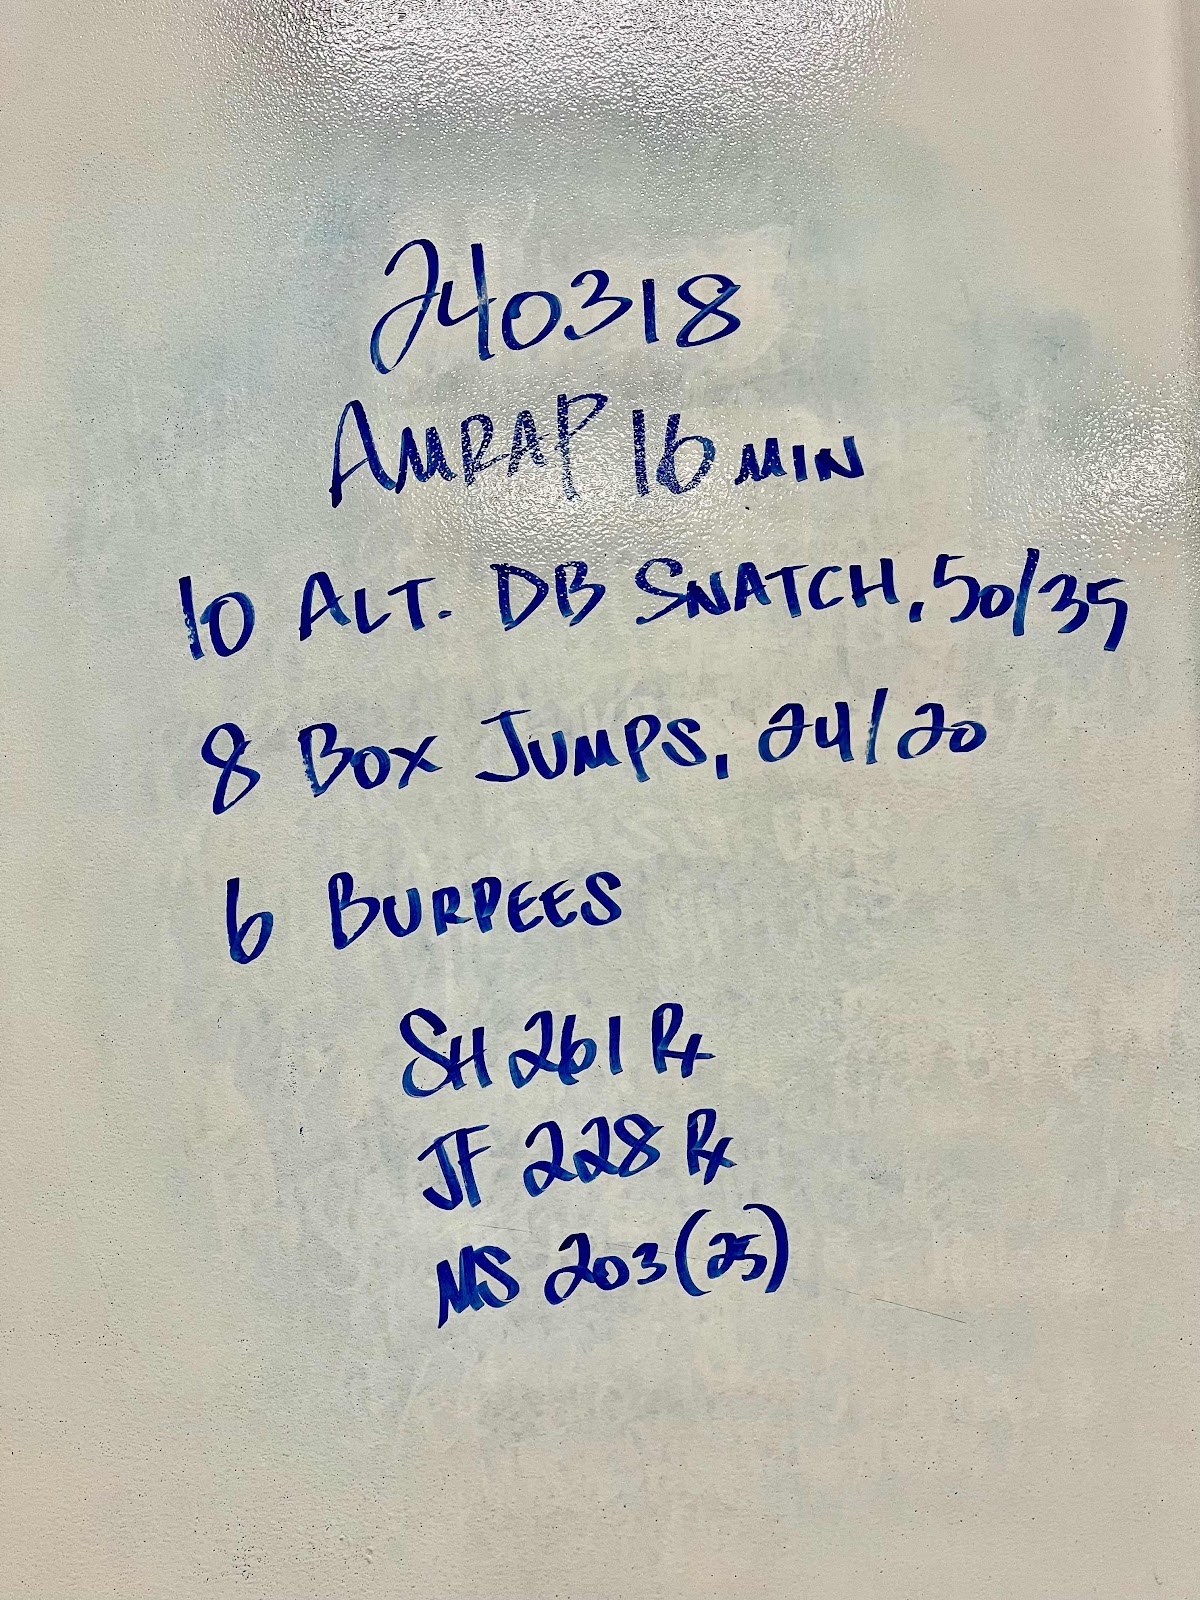 240318
AMRAP 16 MIN
10 ALT. DB SNATCH, 50/35
8 BOX JUMPS, 24/20
6 BURPEES
SH 261 Rx
JF 228 Rx
MS 203 (25)